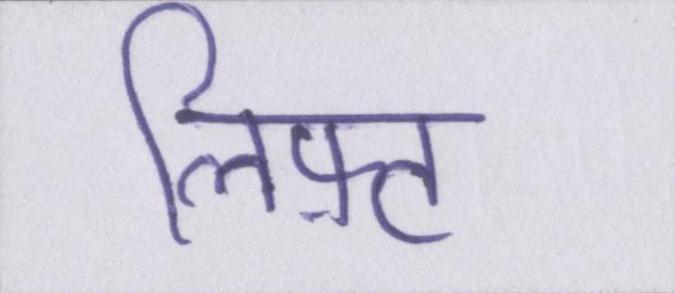 लिफ़्ट